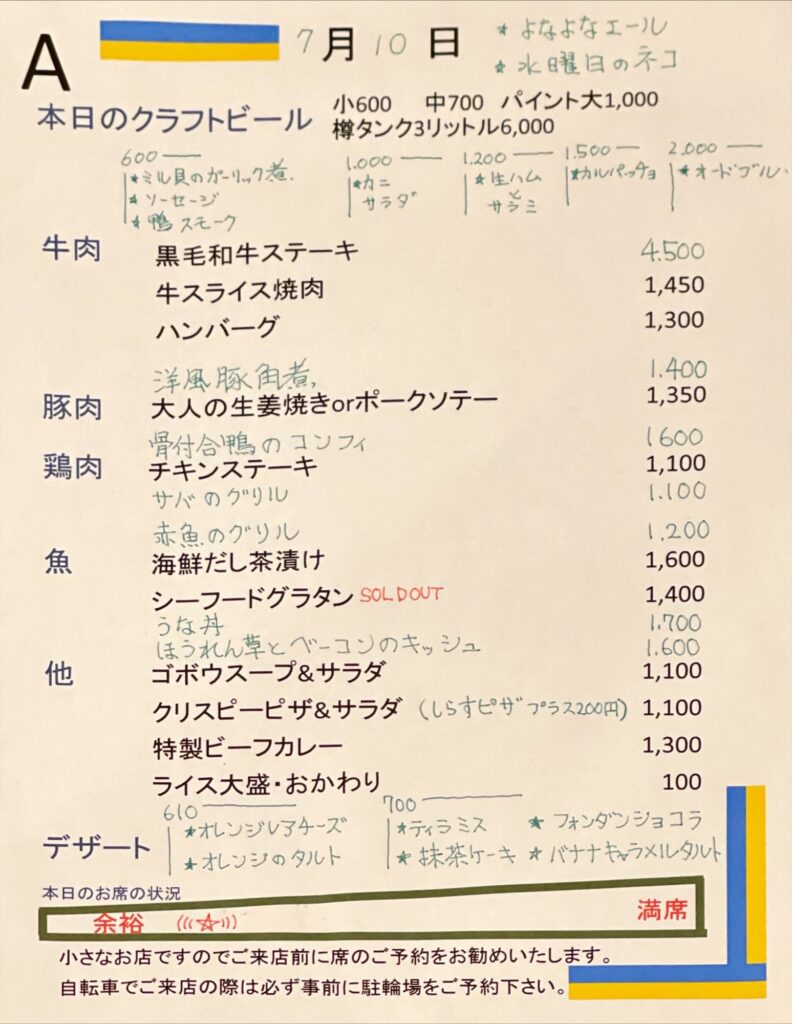 A 7月10日 ★よなよなエール
★水曜日のネコ
本日のクラフトビール 小600 中700 パイント大1,000
樽タンク3リットル6,000
600 1.000 1.200 1.500 2.000
★ミル貝のガーリック煮. ★カニ ★生ハム ★カルパッチョ ★オードブル
★ソーセージ サラダ と
★鴨スモーク サラミ
牛肉 黒毛和牛ステーキ 4.500
牛スライス焼肉 1,450
ハンバーグ 1,300
洋風豚角煮, 1.400
豚肉 大人の生姜焼きorポークソテー 1,350
骨付合鴨のコンフィ 1600
鶏肉 チキンステーキ 1,100
サバのグリル 1.100
赤魚のグリル 1.200
魚 海鮮だし茶漬け 1,600
シーフードグラタン SOLDOUT 1,400
うな丼 1.700
ほうれん草とベーコンのキッシュ 1.600
他 ゴボウスープ&サラダ 1,100
クリスピーピザ&サラダ (しらすピザ プラス200円) 1,100
特製ビーフカレー 1,300
ライス大盛・おかわり 100
610 700
デザート ★オレンジレアチーズ ★ティラミス ★フォンダンショコラ
★オレンジのタルト ★抹茶ケーキ ★バナナキャラメルタルト
本日のお席の状況
余裕 (((☆))) 満席
小さなお店ですのでご来店前に席のご予約をお勧めいたします。
自転車でご来店の際は必ず事前に駐輪場をご予約下さい。